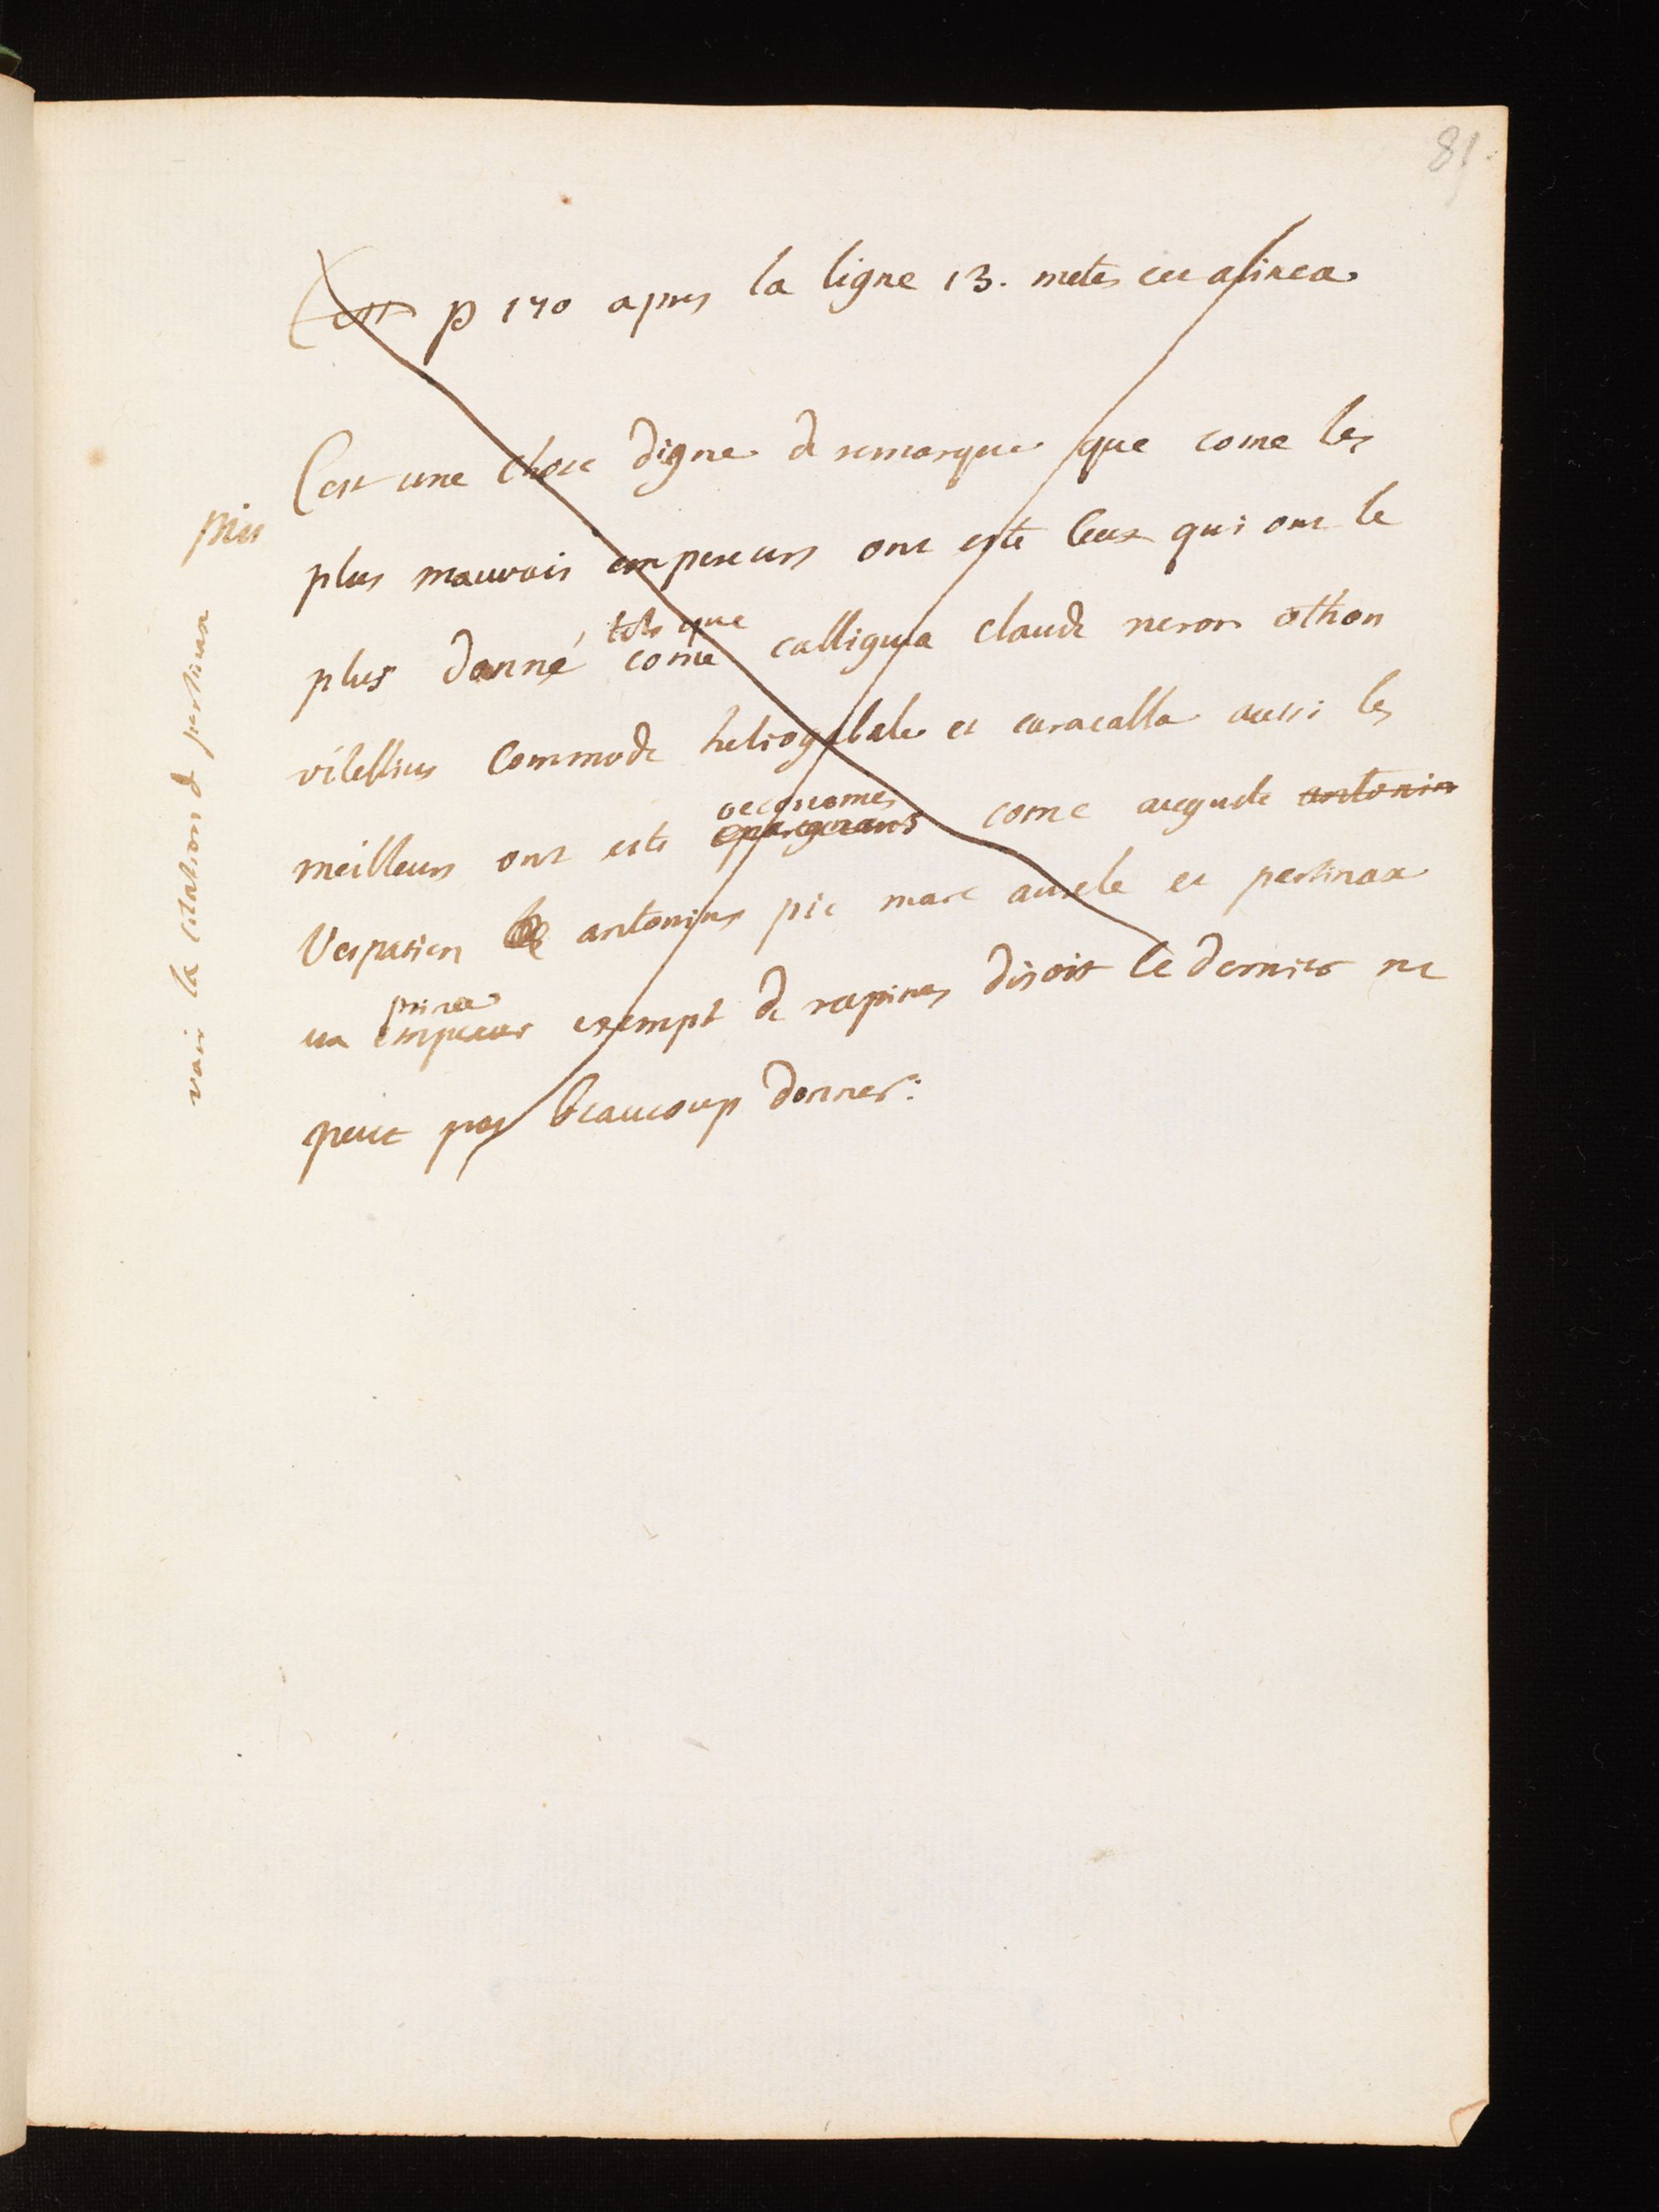 81.
Cest p 170 apres la ligne 13. metes cet alinea
Cest une chose digne de remarque que come les
plus mauvais empereurs ont esté ceux qui ont le
tels que
plus donné come calligula claude neron othon
vitellius Commode heliogabale et caracalla aussi les
oeconomes
meilleurs ont esté epargnans come auguste antonin
Vespasien antonius pie marc aurele et pertinax
prince
un empereur exempt de rapines disoit ce dernier ne
peut pas beaucoup donner:
mis
voir la citation de pertinax